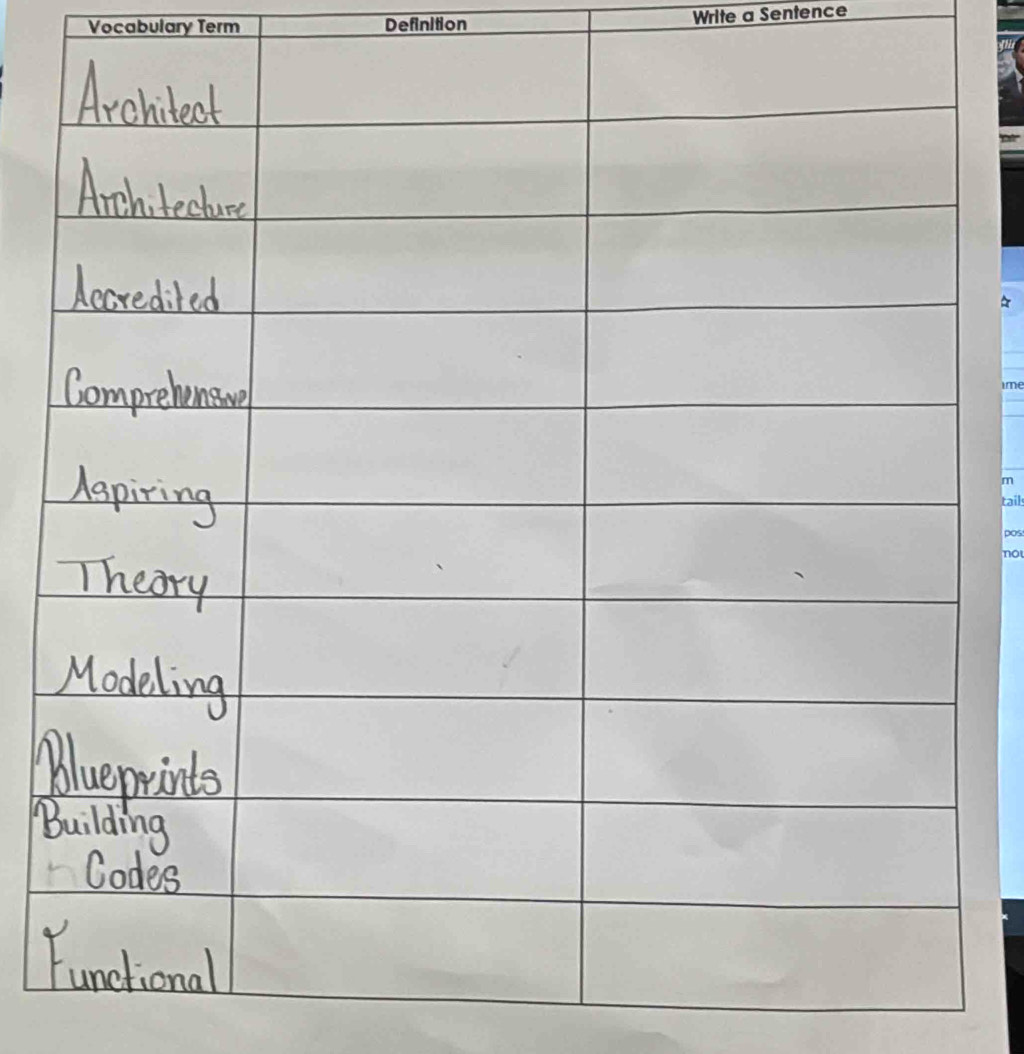 Vocabulary Term Definition Write a Sentence
Architect
Architecture
Accredited
Comprehensive
Aspiring
Theory
Modeling
Blueprints
Building
Codes
Functional